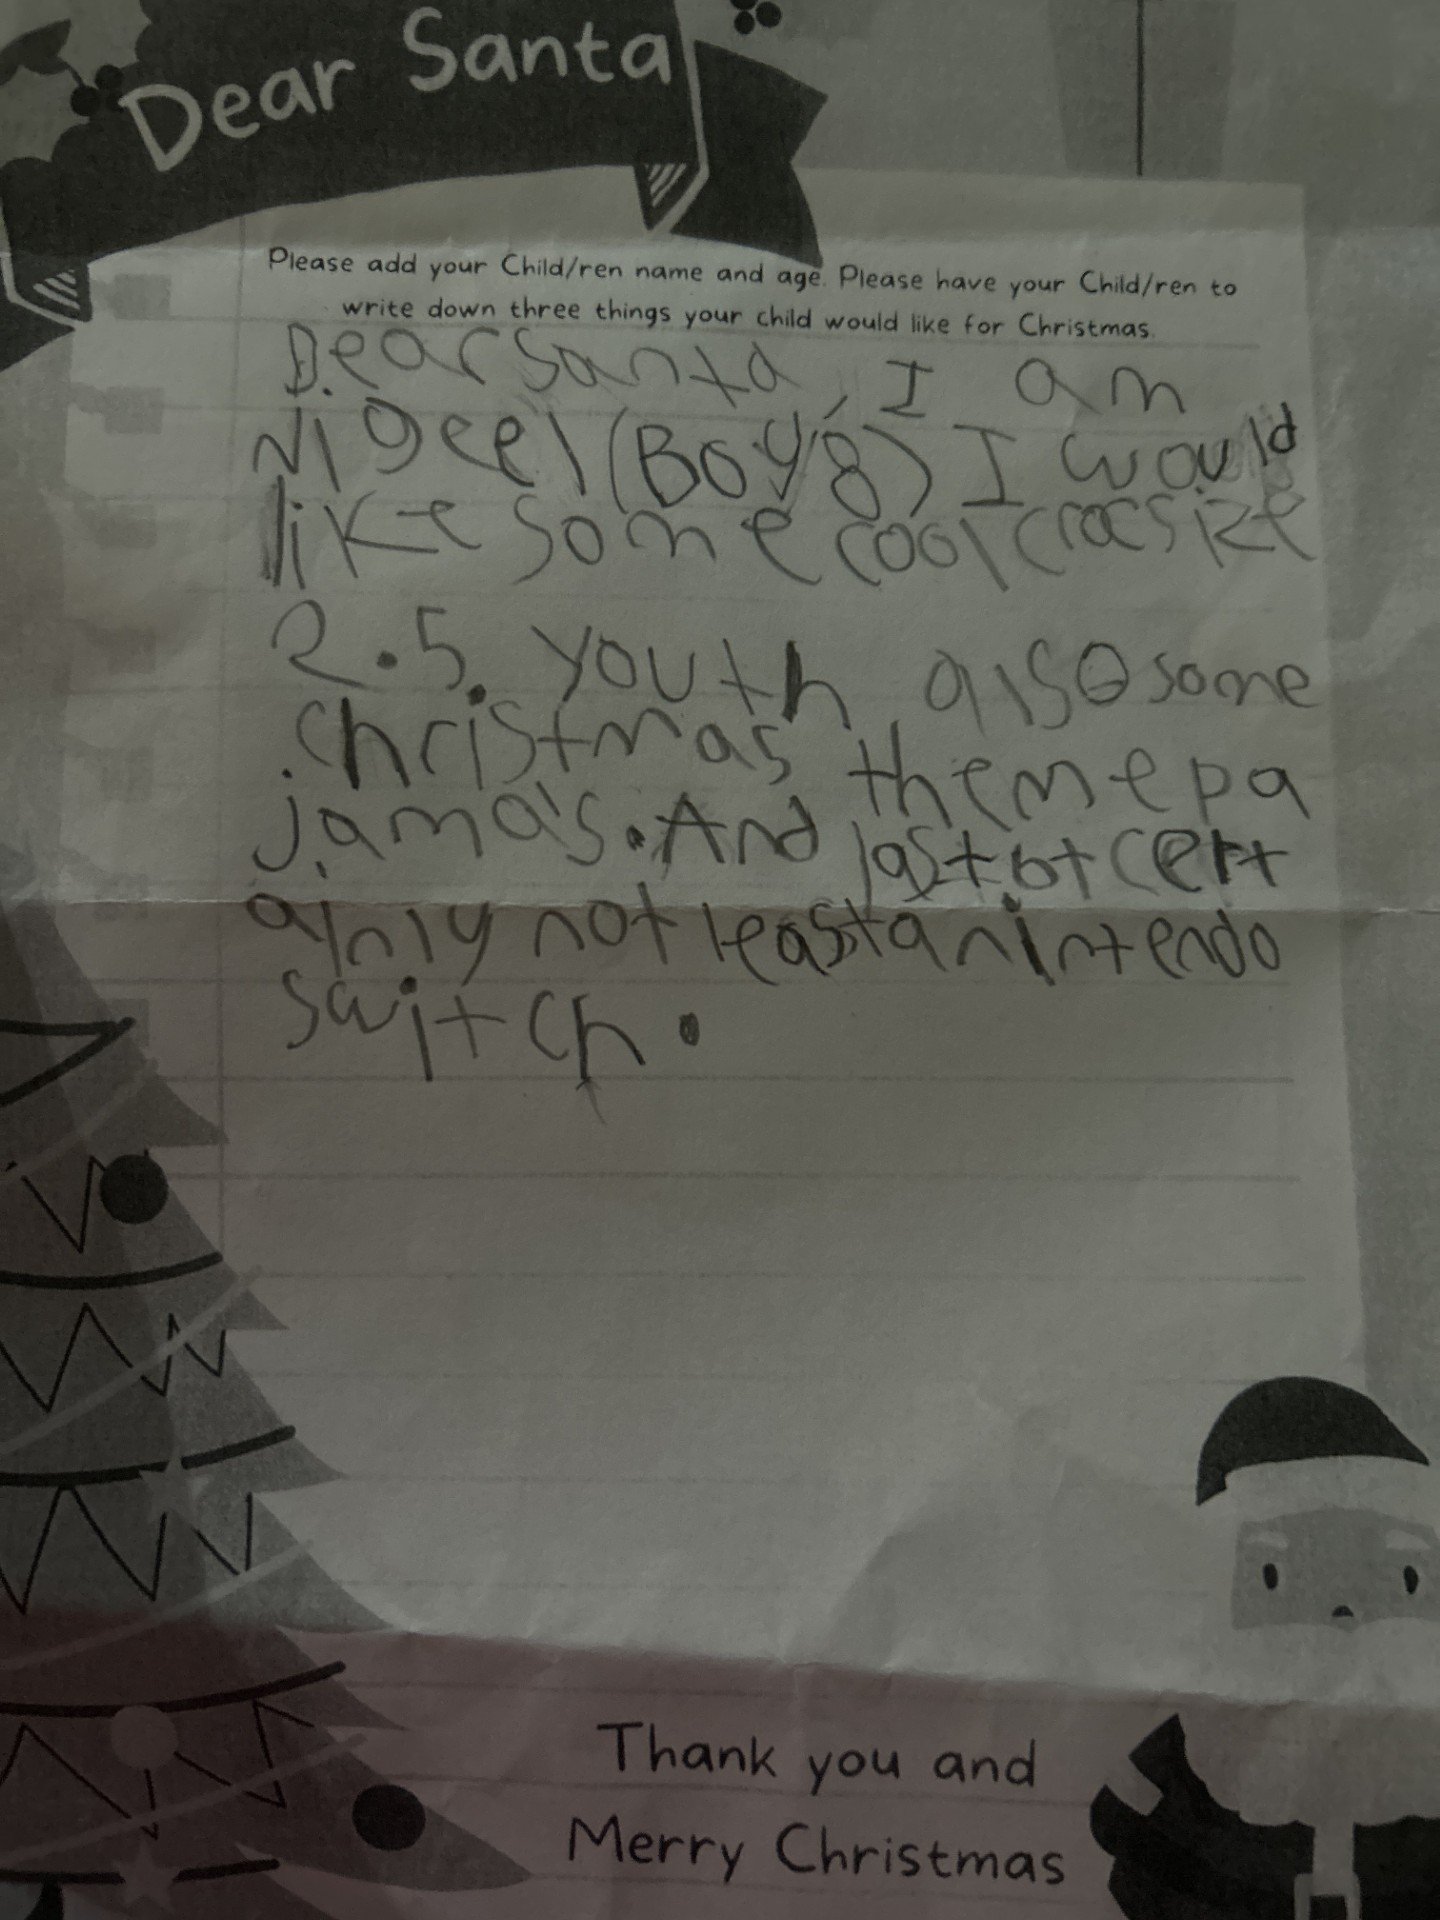 Dear Santa
Please add your Child/ren name and age. Please have your Child/ren to
write down three things your child would like for Christmas.
Dear Santa, I am
Nigeel (Boy, 8) I would
like some cool crocs size
2.5. youth also some
christmas theme pa
jama's. And last bt cert
ainly not least a nintendo
switch.
Thank you and
Merry Christmas